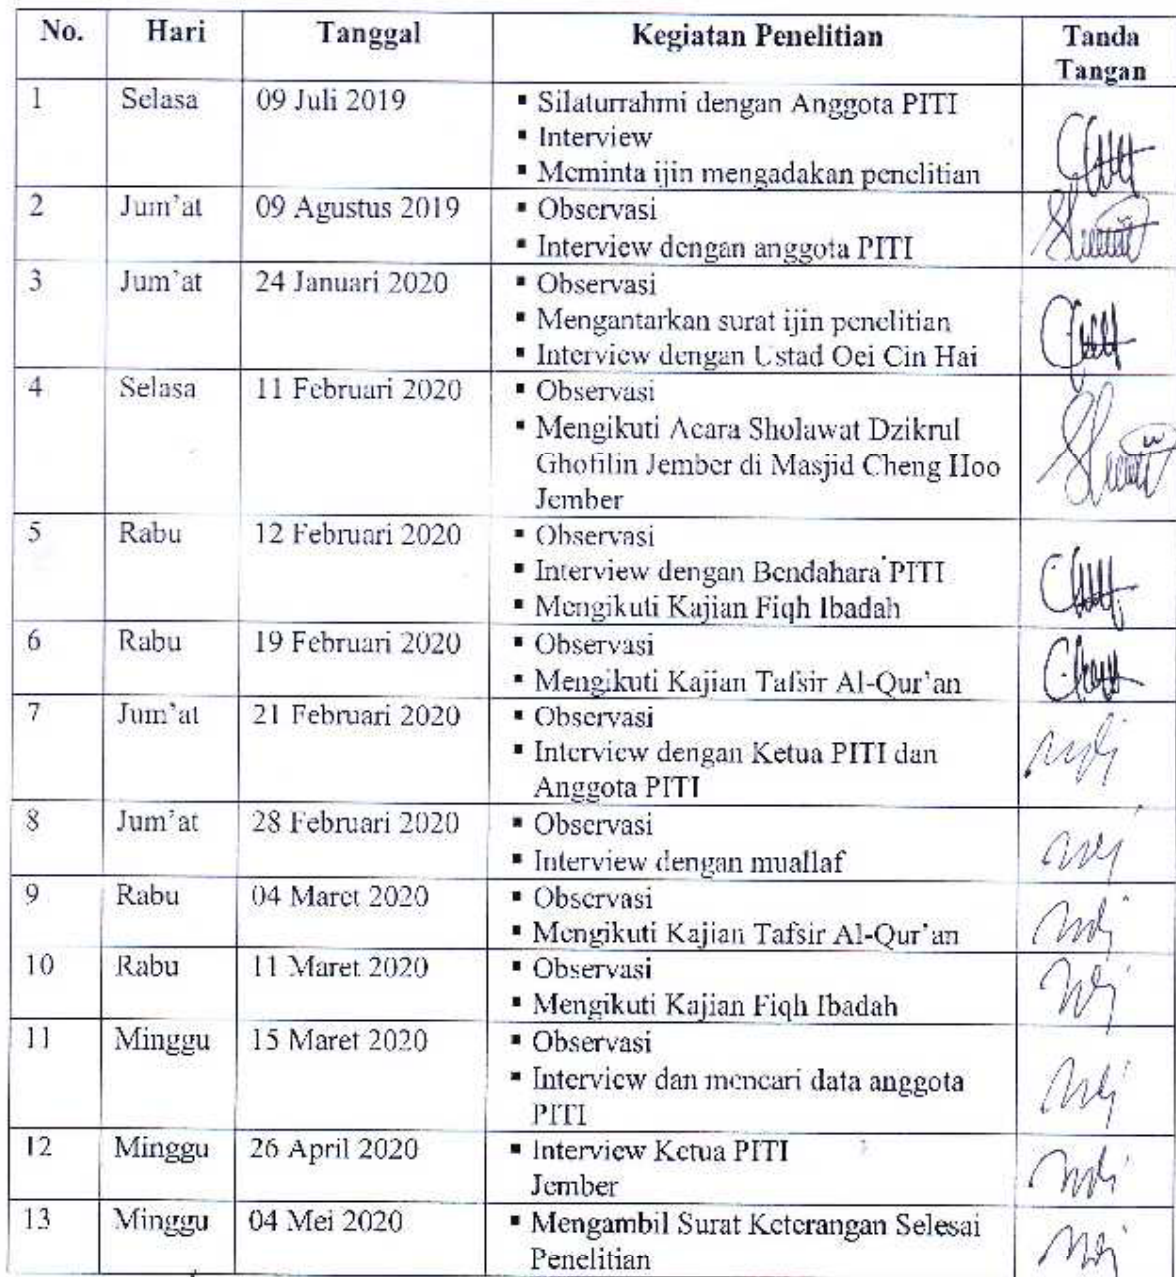 No. Hari Tanggal Kegiatan Penelitian Tanda
Tangan
1 Selasa 09 Juli 2019 ▪ Silaturrahmi dengan Anggota PITI
▪ Interview
▪ Meminta ijin mengadakan penelitian
2 Jum'at 09 Agustus 2019 ▪ Observasi
▪ Interview dengan anggota PITI
3 Jum'at 24 Januari 2020 ▪ Observasi
▪ Mengantarkan surat ijin penelitian
▪ Interview dengan Ustad Oei Cin Hai
4 Selasa 11 Februari 2020 ▪ Observasi
▪ Mengikuti Acara Sholawat Dzikrul
Ghofilin Jember di Masjid Cheng Hoo
Jember
5 Rabu 12 Februari 2020 ▪ Observasi
▪ Interview dengan Bendahara PITI
▪ Mengikuti Kajian Fiqh Ibadah
6 Rabu 19 Februari 2020 ▪ Observasi
▪ Mengikuti Kajian Tafsir Al-Qur'an
7 Jum'at 21 Februari 2020 ▪ Observasi
▪ Interview dengan Ketua PITI dan
Anggota PITI
8 Jum'at 28 Februari 2020 ▪ Observasi
▪ Interview dengan muallaf
9 Rabu 04 Maret 2020 ▪ Observasi
▪ Mengikuti Kajian Tafsir Al-Qur'an
10 Rabu 11 Maret 2020 ▪ Observasi
▪ Mengikuti Kajian Fiqh Ibadah
11 Minggu 15 Maret 2020 ▪ Observasi
▪ Interview dan mencari data anggota
PITI
12 Minggu 26 April 2020 ▪ Interview Ketua PITI
Jember
13 Minggu 04 Mei 2020 ▪ Mengambil Surat Keterangan Selesai
Penelitian